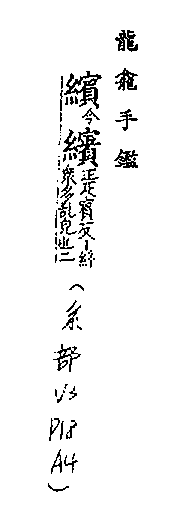 龍龕手鑑
繽今繽正疋賓反丨紛衆多亂皃也二
(糸部 V3 P18 A4)